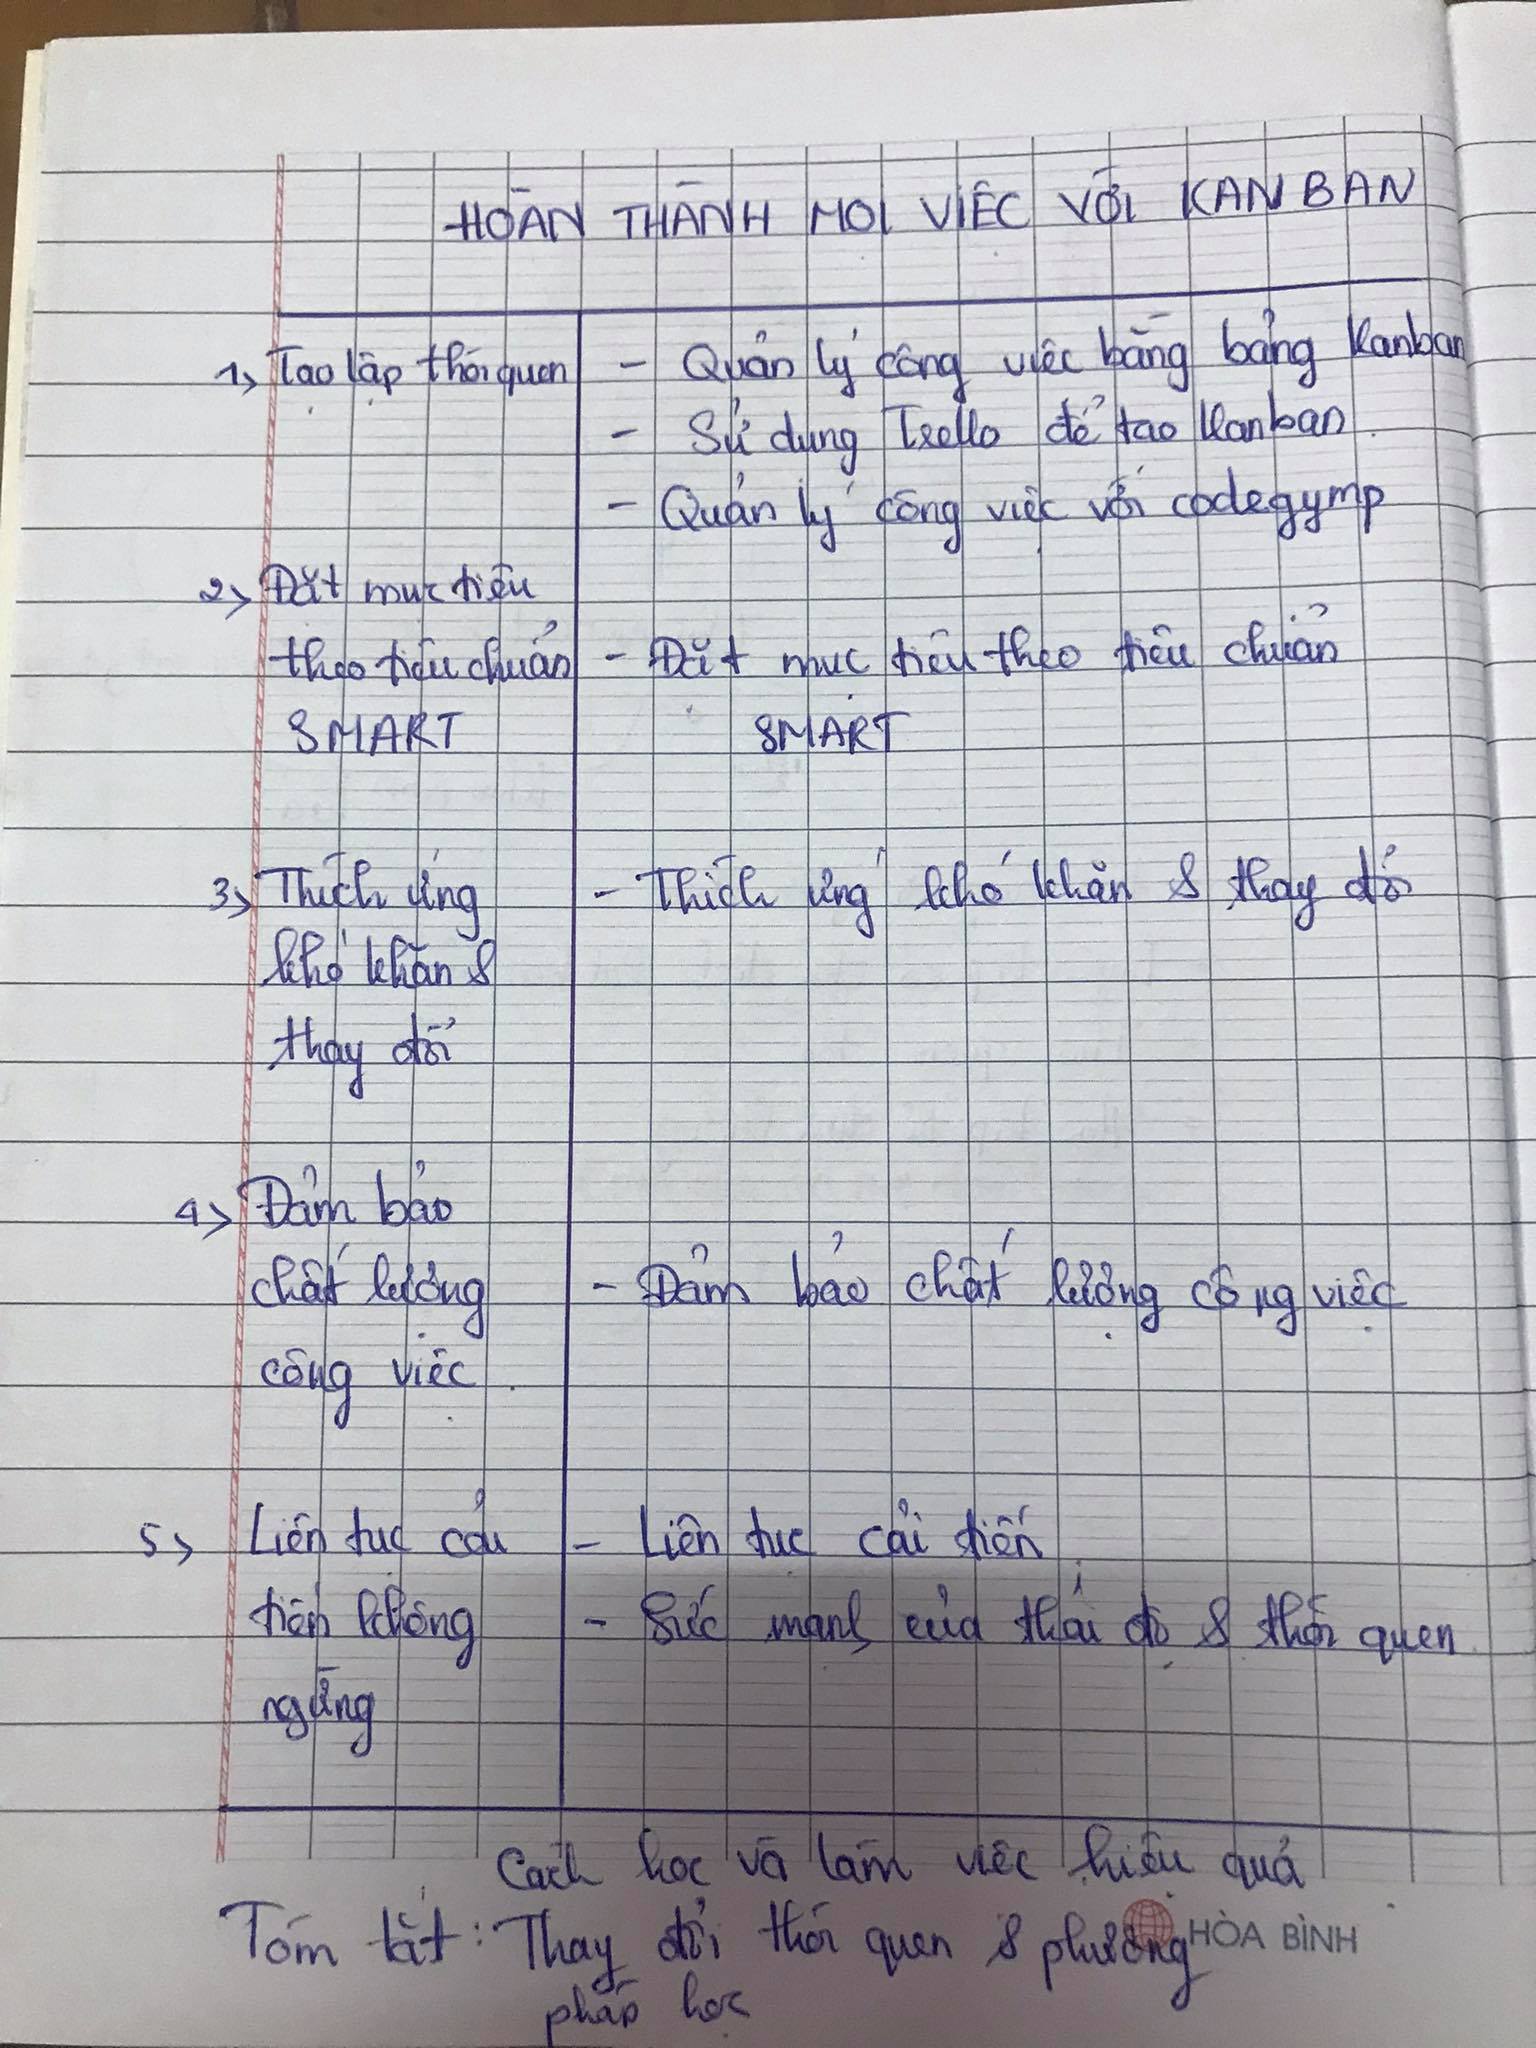 HOÀN THÀNH MỌI VIỆC VỚI KANBAN
1, Tạo lập thói quen - Quản lý công việc bằng bảng Kanban
- Sử dụng Trello để tạo Kanban.
- Quản lý công việc với codegymp
2, Đặt mục tiêu
theo tiêu chuẩn - Đặt mục tiêu theo tiêu chuẩn
SMART SMART
3, Thích ứng - Thích ứng khó khăn & thay đổi
khó khăn &
thay đổi
4, Đảm bảo
chất lượng - Đảm bảo chất lượng công việc
công việc.
5, Liên tục cải - Liên tục cải tiến
tiến không - Sức mạnh của thái độ & thói quen
ngừng
Cách học và làm việc hiệu quả
Tóm tắt: Thay đổi thói quen & phương
pháp học
HÒA BÌNH